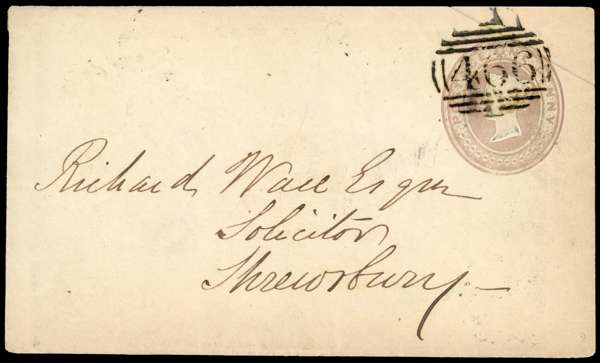 466
P
ANN
Richard Wace Esqre
Solicitor
Shrewsbury